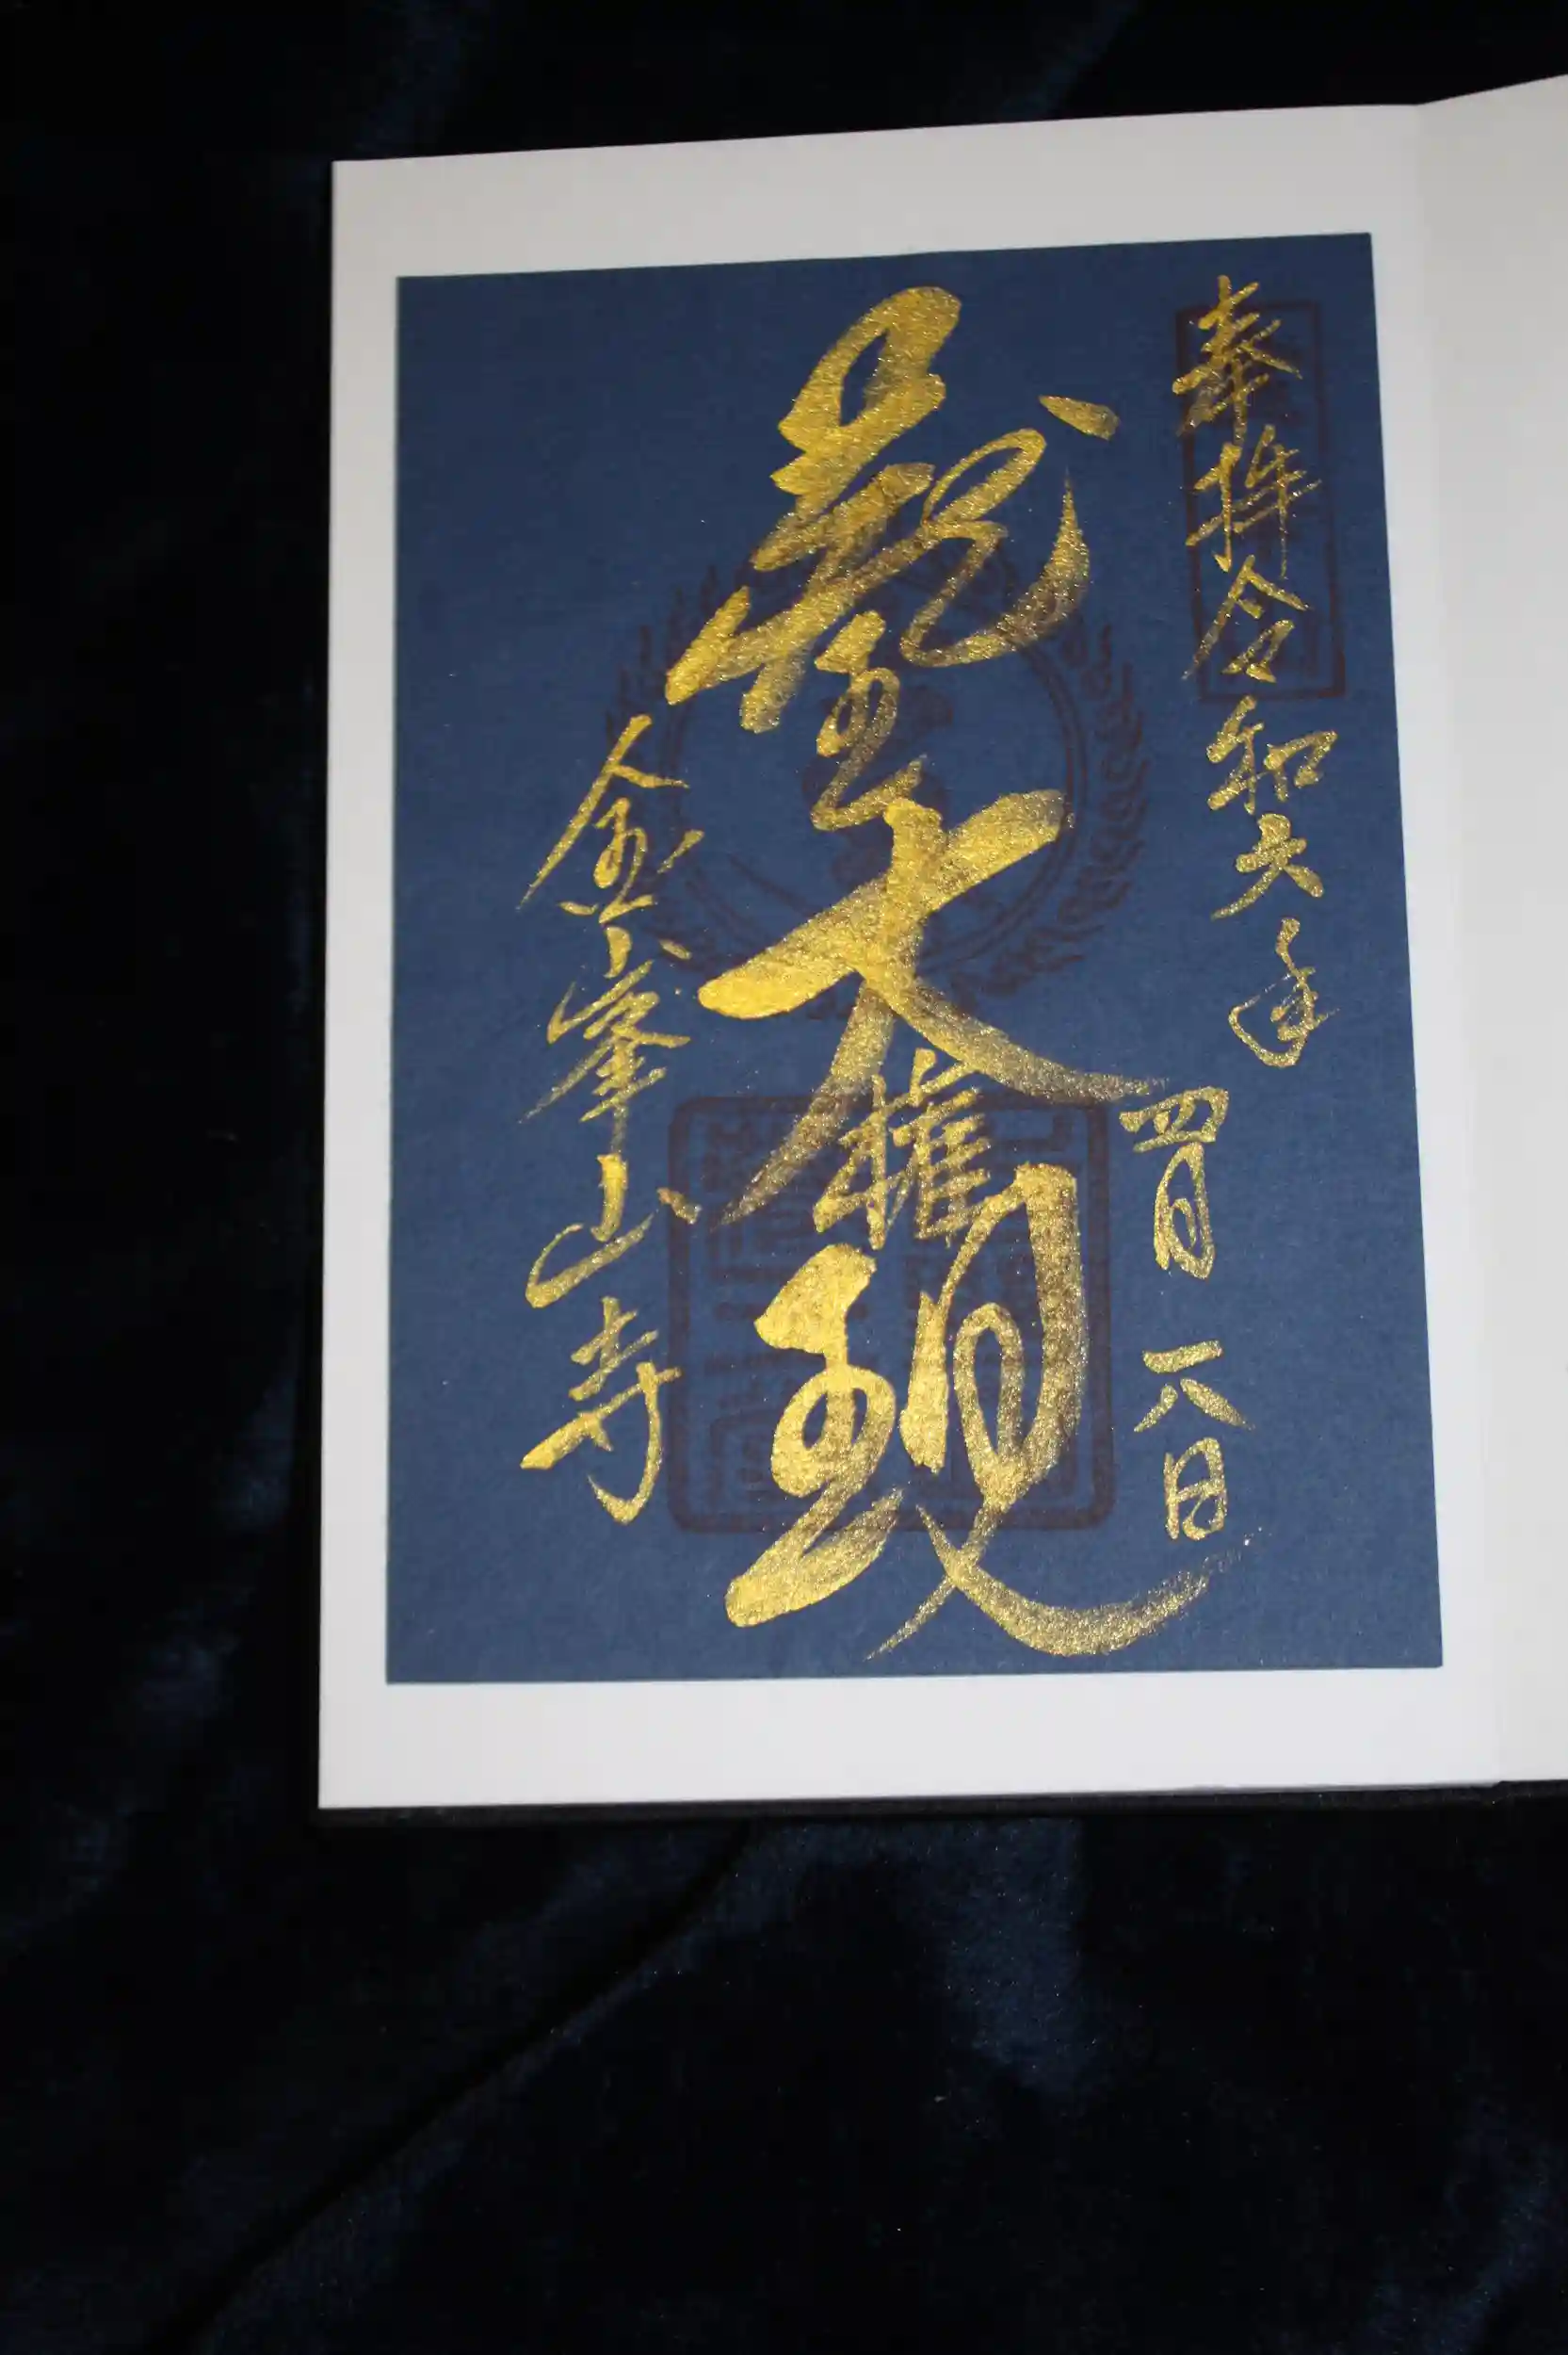 奉拝 令和六年 四月 六日
蔵王大権現
金峯山寺